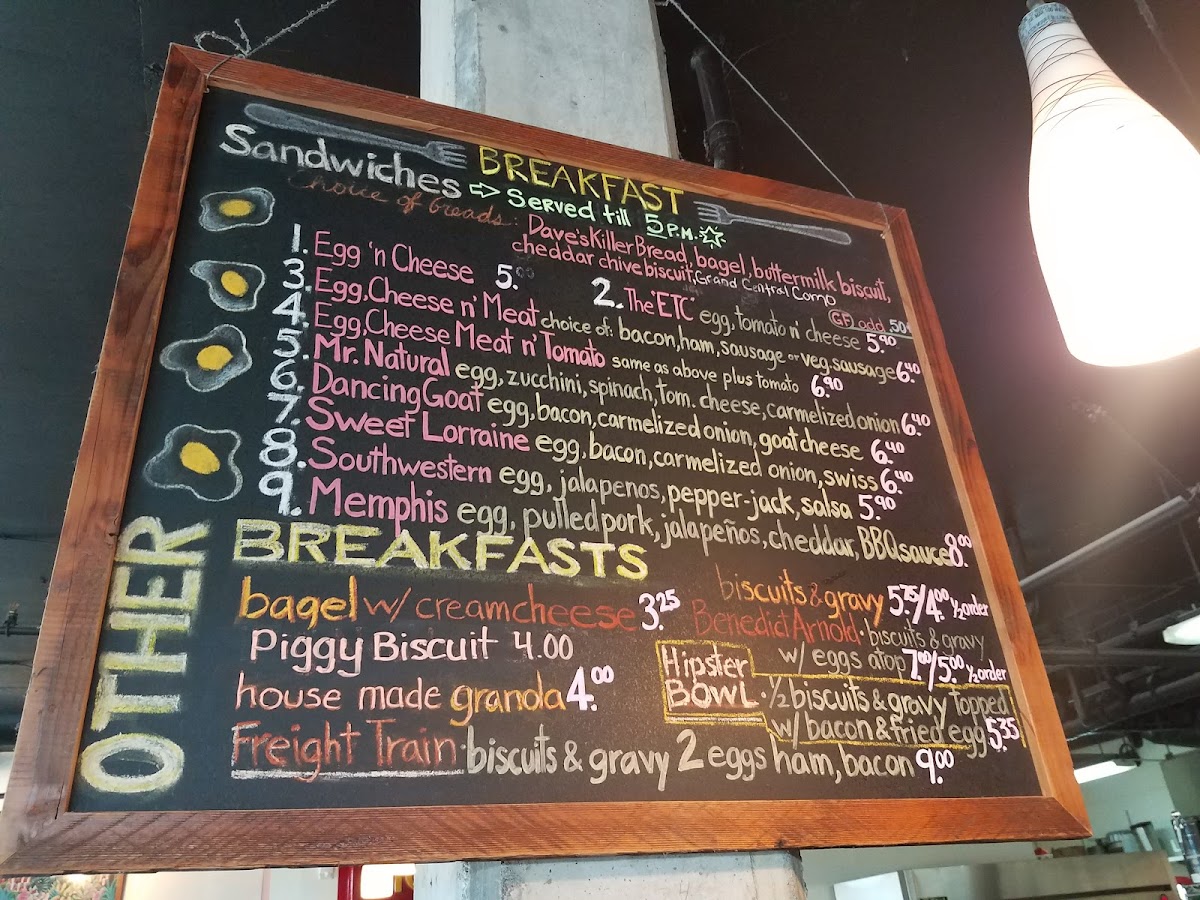 BREAKFAST
Sandwiches ⇨ Served till 5 P.M.
Choice of breads: Dave's Killer Bread, bagel, buttermilk biscuit,
cheddar chive biscuit, Grand Central Como
GF add .50¢
1. Egg 'n Cheese 5.00
2. The "ETC" egg, tomato n' cheese 5.90
3. Egg, Cheese n' Meat choice of: bacon, ham, sausage or veg. sausage 6.40
4. Egg, Cheese Meat n' Tomato same as above plus tomato 6.90
5. Mr. Natural egg, zucchini, spinach, tom. cheese, carmelized onion 6.40
6. Dancing Goat egg, bacon, carmelized onion, goat cheese 6.40
7. Sweet Lorraine egg, bacon, carmelized onion, swiss 6.40
8. Southwestern egg, jalapenos, pepper-jack, salsa 5.90
9. Memphis egg, pulled pork, jalapeños, cheddar, BBQ sauce 8.00
OTHER
BREAKFASTS
bagel w/ creamcheese 3.25
Piggy Biscuit 4.00
house made granola 4.00
biscuits & gravy 5.75/4.00 ½ order
Benedict Arnold · biscuits & gravy
w/ eggs atop 7.00/5.00 ½ order
Hipster
BOWL · ½ biscuits & gravy topped
w/ bacon & fried egg 5.35
Freight Train · biscuits & gravy 2 eggs ham, bacon 9.00